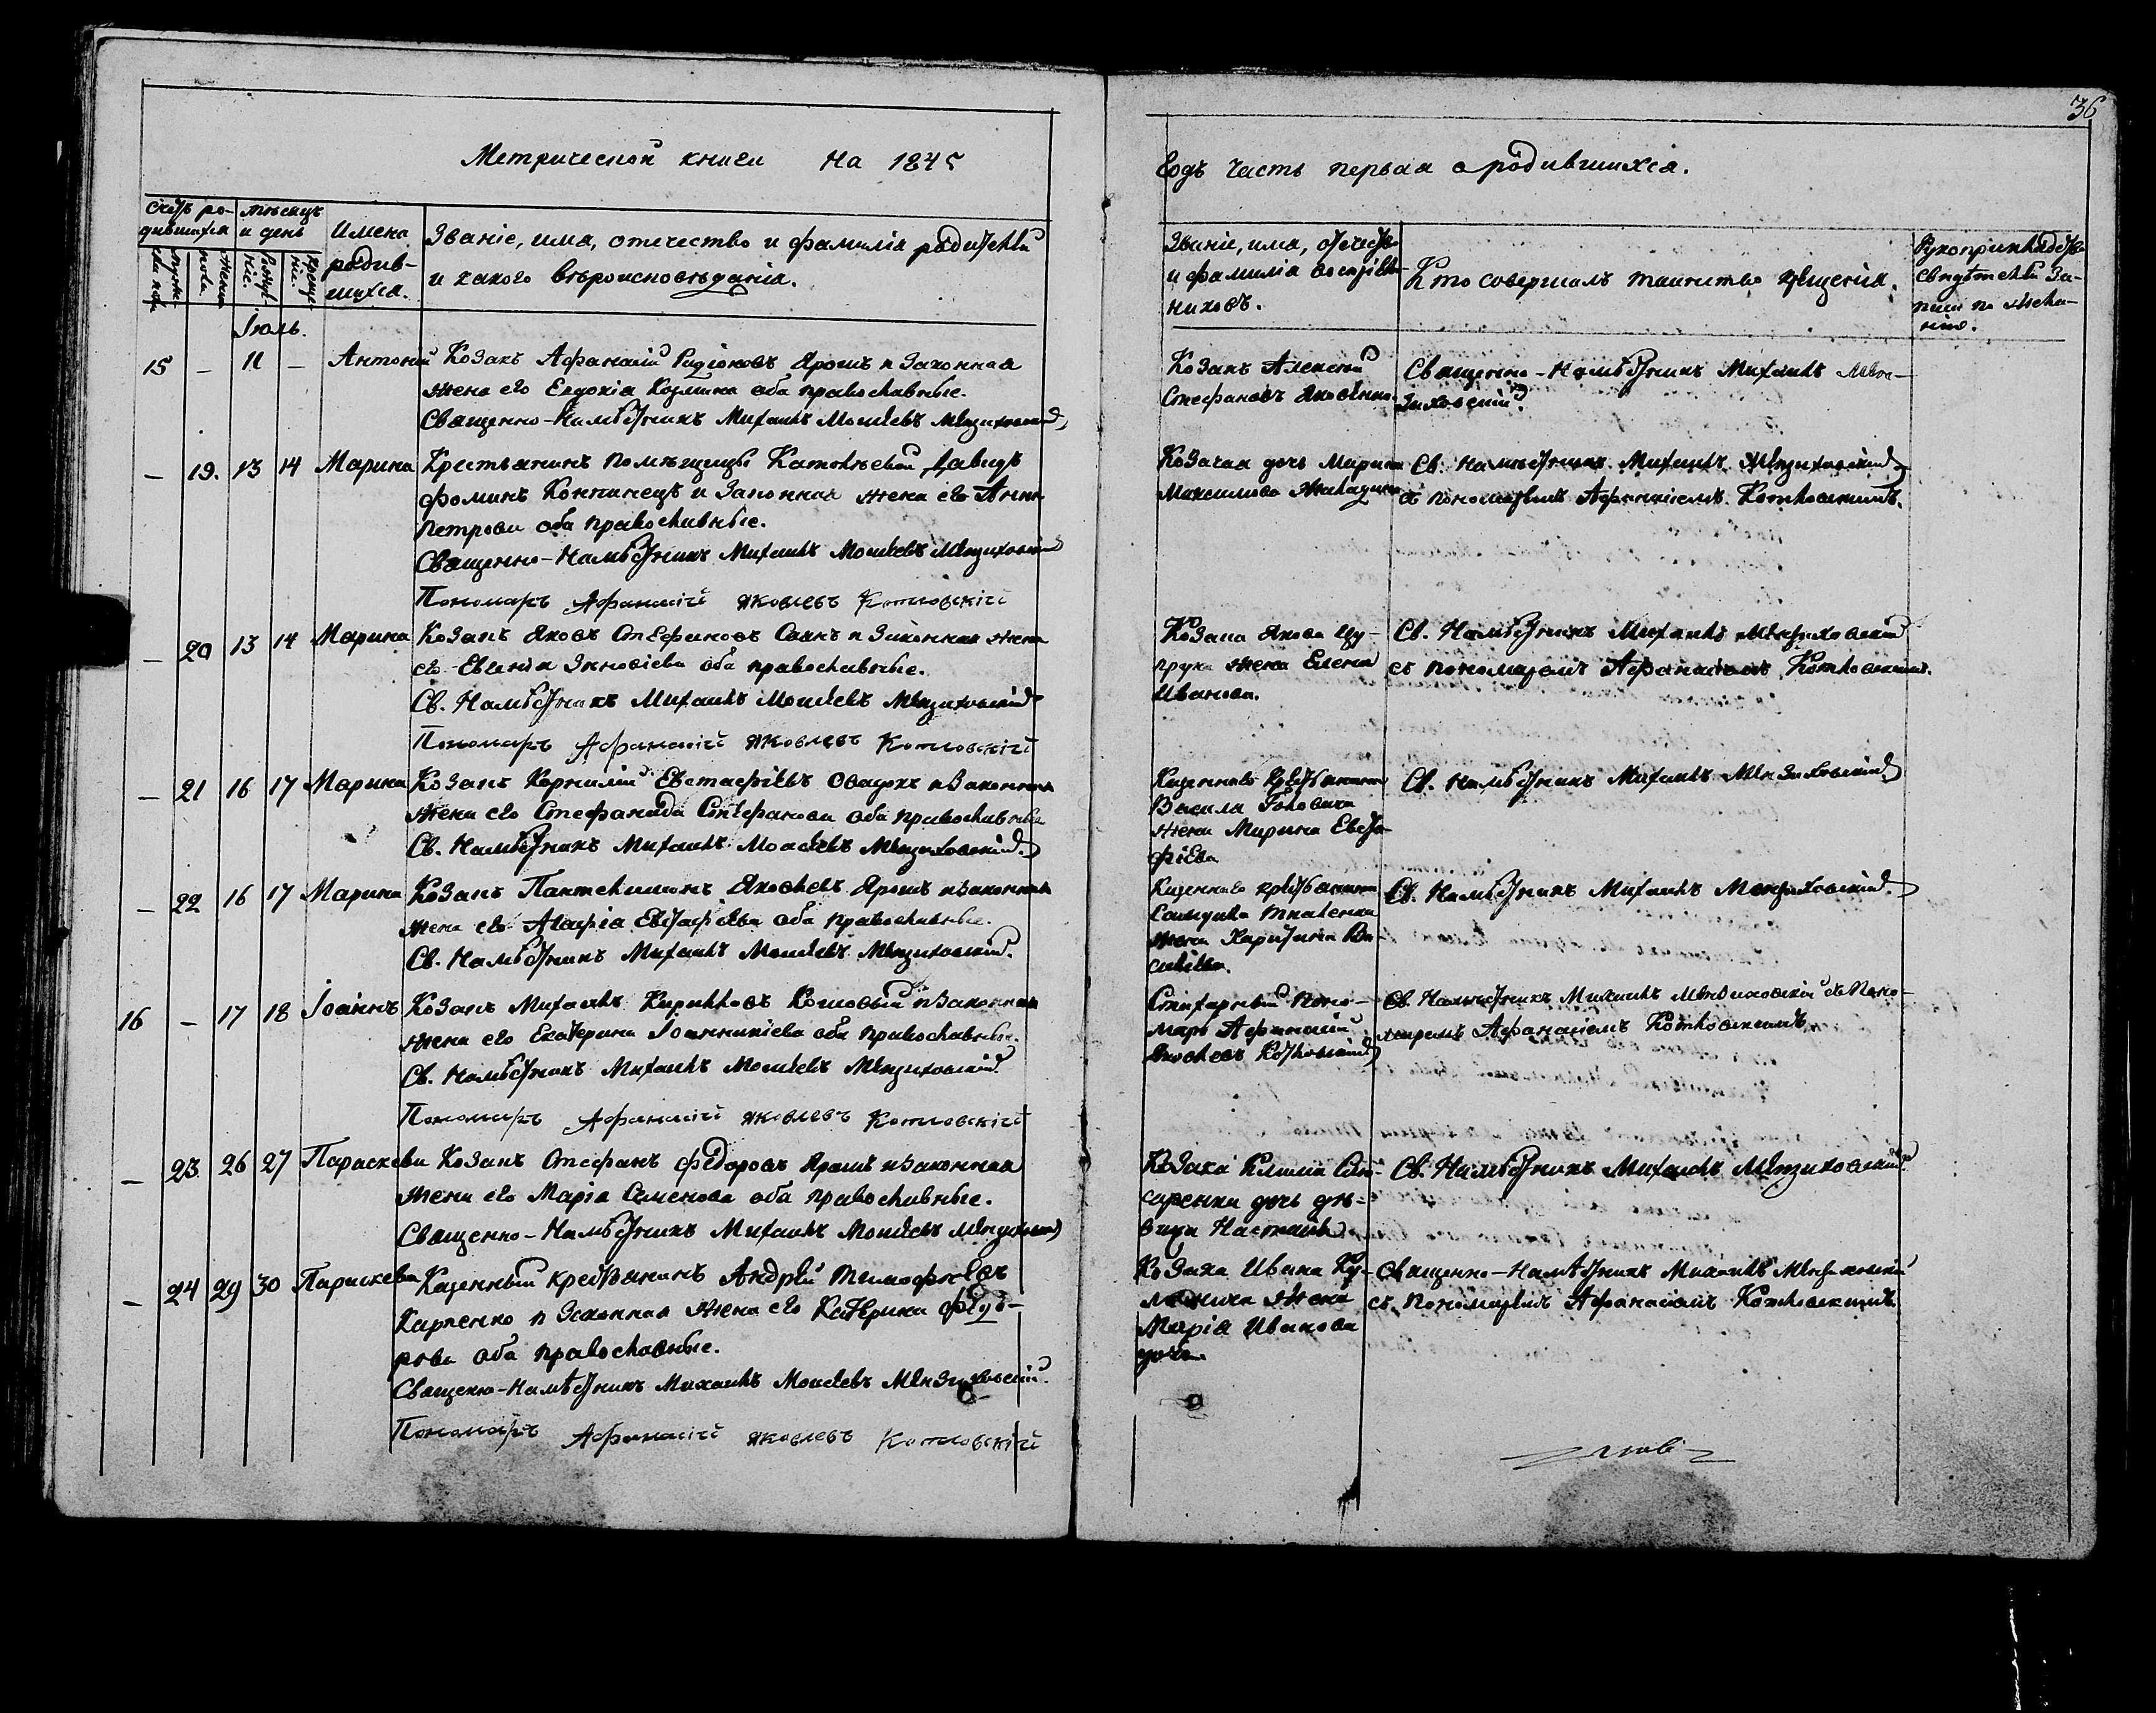 36
Метрической книги на 1845
годъ часть первая о родившихся.
Счетъ ро-
дившихся
мѣсяцъ
и день
Имена
родив-
шихся.
Званіе, имя, отечество и фамилія родителей
и какого вѣроисповѣданія.
Званіе, имя, отечество
и фамилія воспріем-
никовъ.
Кто совершалъ таинство крещенія.
Рукоприкладство
свидѣтелей за-
писи по жела-
нію.
Іюль.
15 – 11 – Антоній
Козакъ Афанасій Родіоновъ Ярошъ и законная
жена его Евдокія Козмина оба православные.
Священно-Намѣстникъ Михаилъ Моисеевъ Мензиховскій
Козакъ Алексѣй
Стефановъ Яковенко.
Священно-Намѣстникъ Михаилъ Мен-
зиховскій.
– 19. 13 14 Марина
Крестьянинъ помѣщицы Давидъ
Фоминъ и законная жена его Анна
Петрова оба православные.
Священно-Намѣстникъ Михаилъ Моисеевъ Мензиховскій
Пономарь Афанасій Яковлевъ Котловскій
Козачая дочь Марина
Максимова
Св. Намѣстникъ Михаилъ Мензиховскій
съ пономаремъ Афанасіемъ Котловскимъ.
– 20 13 14 Марина
Козакъ Яковъ Стефановъ Саякъ и законная жена
его Евгенія Зиновіева оба православные.
Св. Намѣстникъ Михаилъ Моисеевъ Мензиховскій
Пономарь Афанасій Яковлевъ Котловскій
Козака Якова Цу-
прука жена Елена
Иванова.
Св. Намѣстникъ Михаилъ Мензиховскій
съ пономаремъ Афанасіемъ Котловскимъ.
– 21 16 17 Марина
Козакъ Корнилій Евстафіевъ и законная
жена его Стефанида Стефанова оба православные
Св. Намѣстникъ Михаилъ Моисеевъ Мензиховскій.
Казеннаго крестьянина
Василя
жена Марина Евста-
фіева
Св. Намѣстникъ Михаилъ Мензиховскій
– 22 16 17 Марина
Козакъ Пантелимонъ Яковлевъ Ярошъ и законная
жена его Агафія Евстафіева оба православные.
Св. Намѣстникъ Михаилъ Моисеевъ Мензиховскій.
Казеннаго крестьянина
Ткаченка
жена Харитина Ва-
силіева.
Св. Намѣстникъ Михаилъ Мензиховскій.
16 – 17 18 Іоаннъ
Козакъ Михаилъ Кирилловъ Кошовый и законная
жена его Екатерина Іоанникіева оба православные.
Св. Намѣстникъ Михаилъ Моисеевъ Мензиховскій.
Пономарь Афанасій Яковлевъ Котловскій
Стихарный поно-
марь Афанасій
Яковлевъ Котловскій
Св. Намѣстникъ Михаилъ Мензиховскій съ поно-
маремъ Афанасіемъ Котловскимъ
– 23 26 27 Параскева
Козакъ Стефанъ Федоровъ Ярошъ и законная
жена его Марія Семенова оба православные.
Священно-Намѣстникъ Михаилъ Моисеевъ Мензиховскій
Козака Климa
дочь дѣ-
вица Настасія
Св. Намѣстникъ Михаилъ Мензиховскій.
– 24 29 30 Параскева
Казенный крестьянинъ Андрей Тимофѣевъ
Карпенко и законная жена его Катерина Федо-
рова оба православные.
Священно-Намѣстникъ Михаилъ Моисеевъ Мензиховскій.
Пономарь Афанасій Яковлевъ Котловскій
Козака Ивана Ку-
жена
Марія Иванова
дочь
Священно-Намѣстникъ Михаилъ Мензиховскій
съ пономаремъ Афанасіемъ Котловскимъ